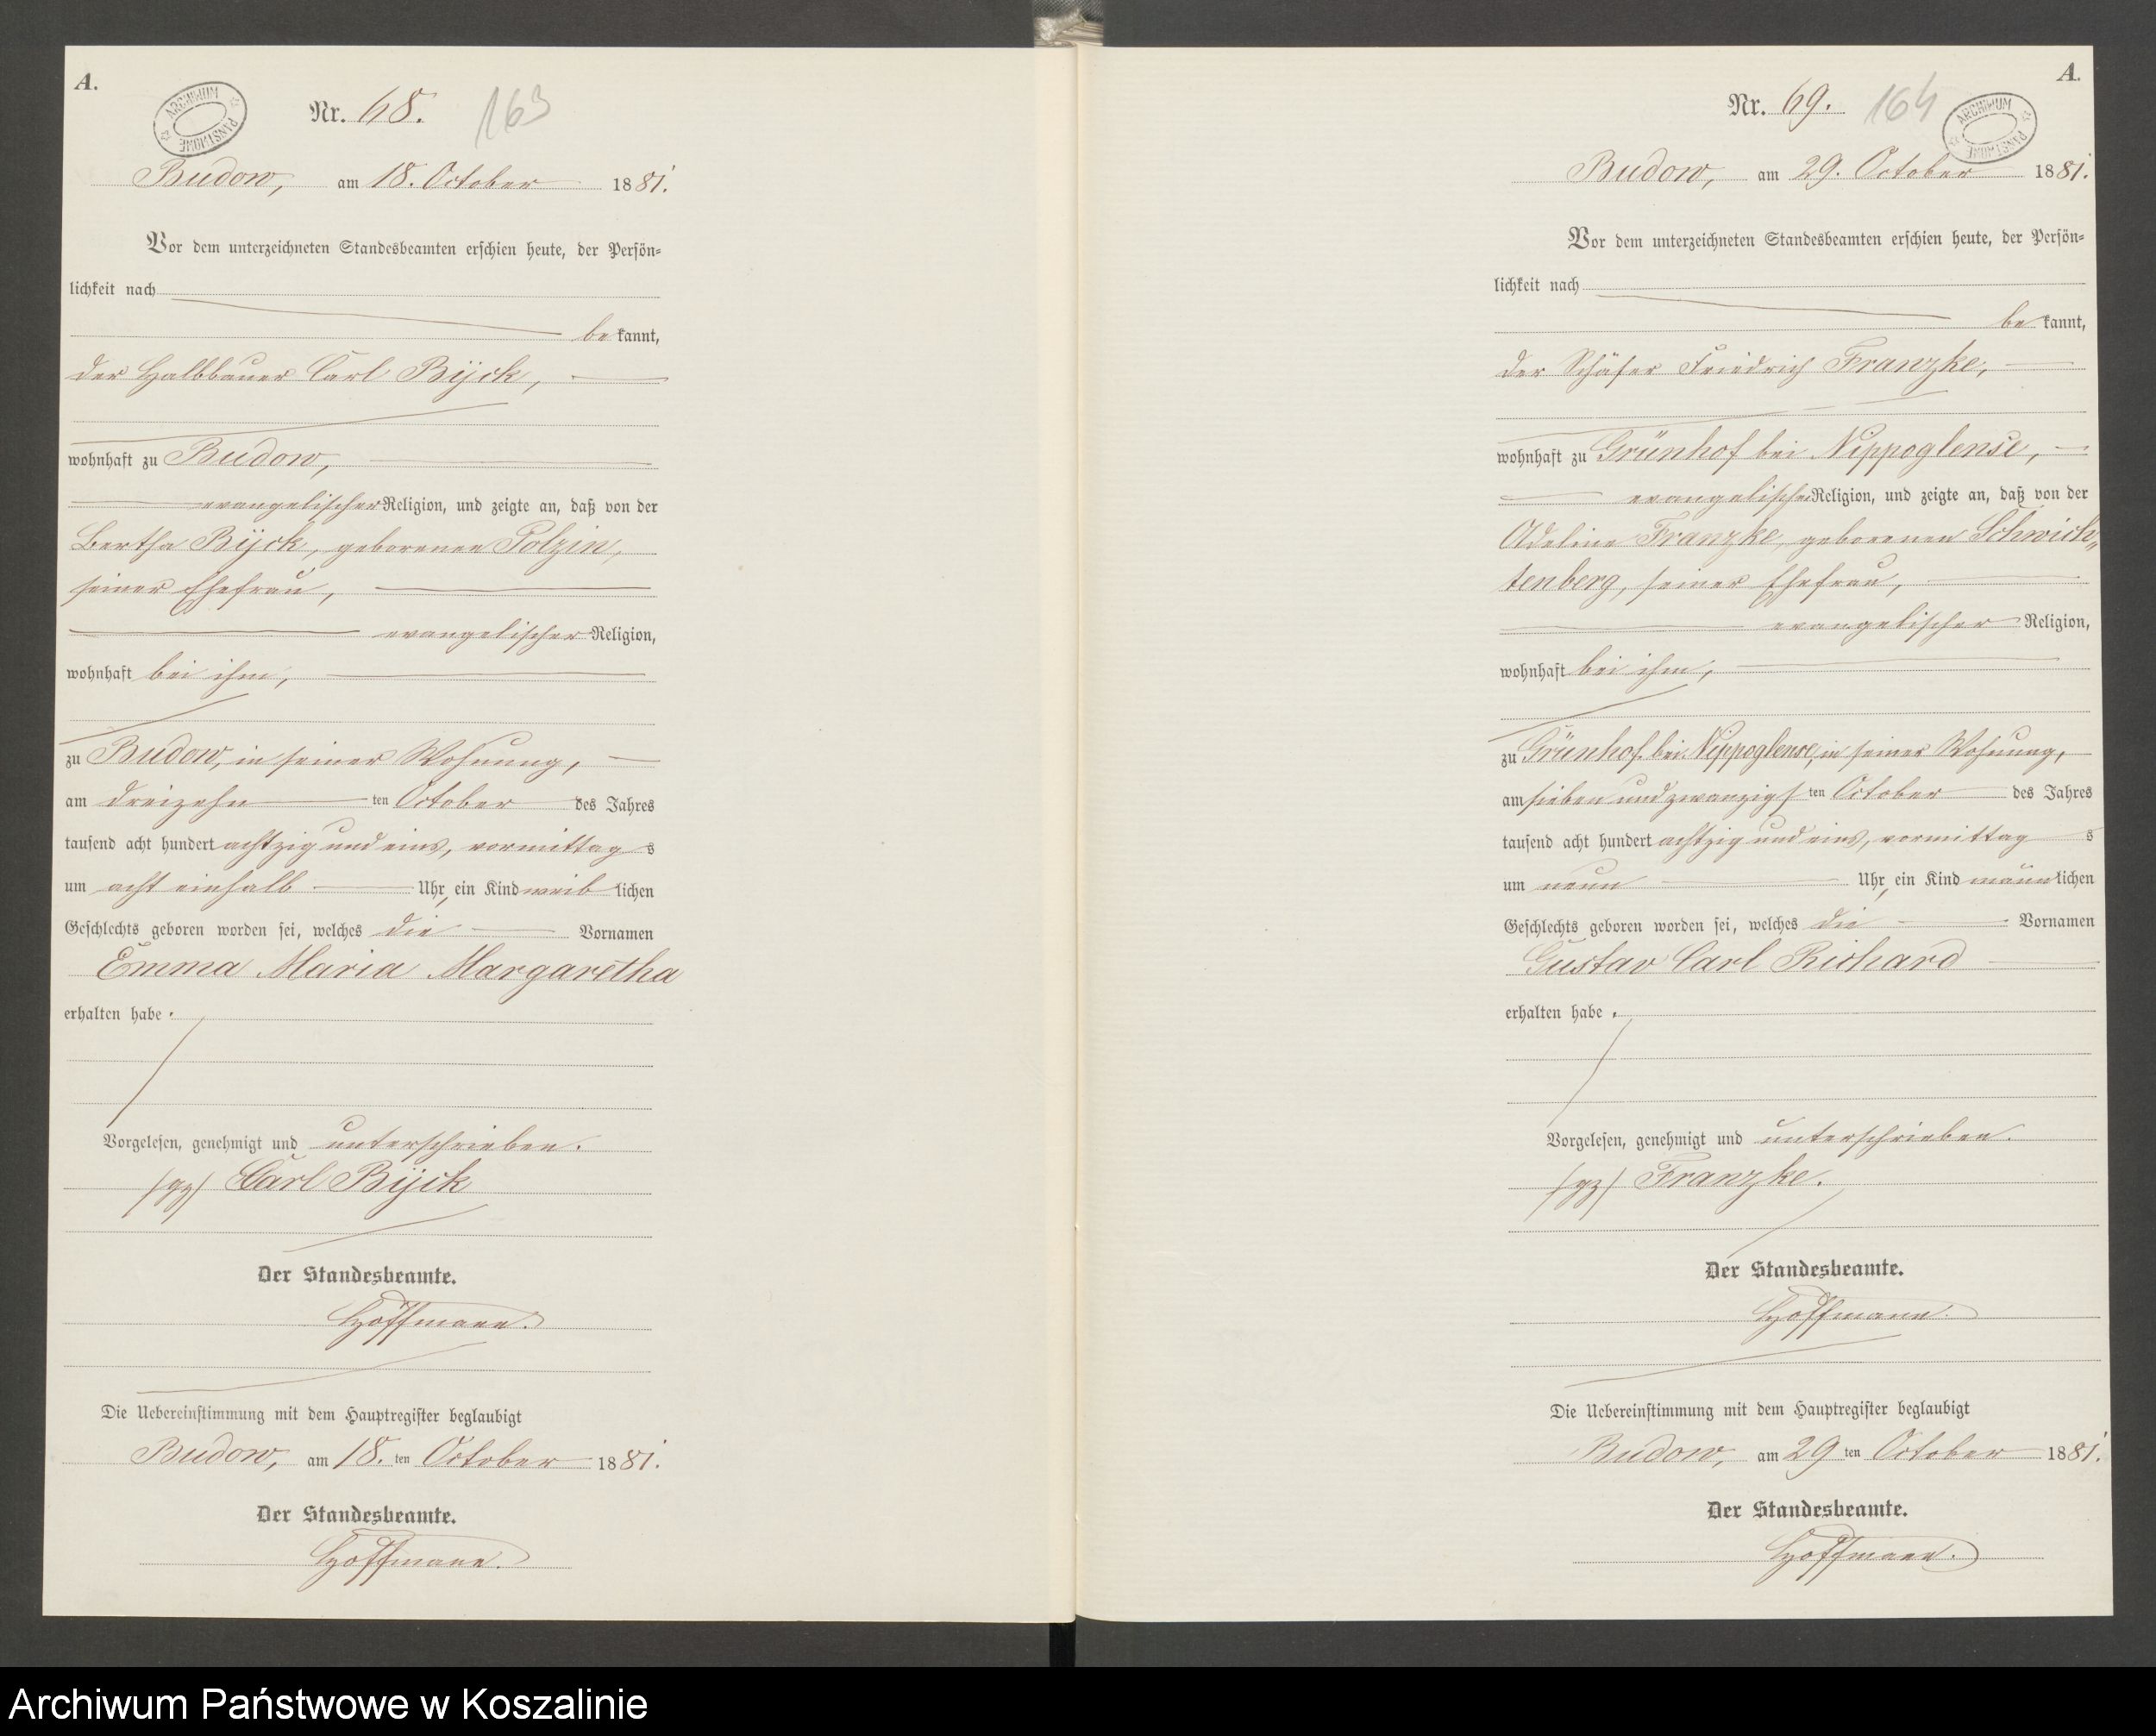 A.
ARCHIWUM PAŃSTWOWE
Nr. 68. 163
Budow, am 18. October 1881.
Vor dem unterzeichneten Standesbeamten erschien heute, der Persön-
lichkeit nach
be kannt,
der Halbbauer Carl Bÿck,
wohnhaft zu Budow,
evangelischer Religion, und zeigte an, daß von der
Bertha Bÿck, geborenen Polzin,
seiner Ehefrau,
evangelischer Religion,
wohnhaft bei ihm,
zu Budow, in seiner Wohnung,
am dreizehn ten October des Jahres
tausend acht hundert achtzig und eins, vormittag s
um acht einhalb Uhr, ein Kind weib lichen
Geschlechts geboren worden sei, welches die Vornamen
Emma Maria Margaretha
erhalten habe.
Vorgelesen, genehmigt und unterschrieben.
(gz) Carl Bÿck
Der Standesbeamte.
Hoffmann.
Die Uebereinstimmung mit dem Hauptregister beglaubigt
Budow, am 18. ten October 1881.
Der Standesbeamte.
Hoffmann.
A.
ARCHIWUM PAŃSTWOWE
Nr. 69. 164
Budow, am 29. October 1881.
Vor dem unterzeichneten Standesbeamten erschien heute, der Persön-
lichkeit nach
be kannt,
der Schäfer Friedrich Franzke,
wohnhaft zu Grünhof bei Nippoglense,
evangelischer Religion, und zeigte an, daß von der
Adeline Franzke, geborenen Schwich-
tenberg, seiner Ehefrau,
evangelischer Religion,
wohnhaft bei ihm,
zu Grünhof bei Nippoglense, in seiner Wohnung,
am sieben und zwanzigs ten October des Jahres
tausend acht hundert achtzig und eins, vormittag s
um neun Uhr, ein Kind männ lichen
Geschlechts geboren worden sei, welches die Vornamen
Gustav Carl Richard
erhalten habe.
Vorgelesen, genehmigt und unterschrieben.
(gz) Franzke.
Der Standesbeamte.
Hoffmann.
Die Uebereinstimmung mit dem Hauptregister beglaubigt
Budow, am 29 ten October 1881.
Der Standesbeamte.
Hoffmann.
Archiwum Państwowe w Koszalinie